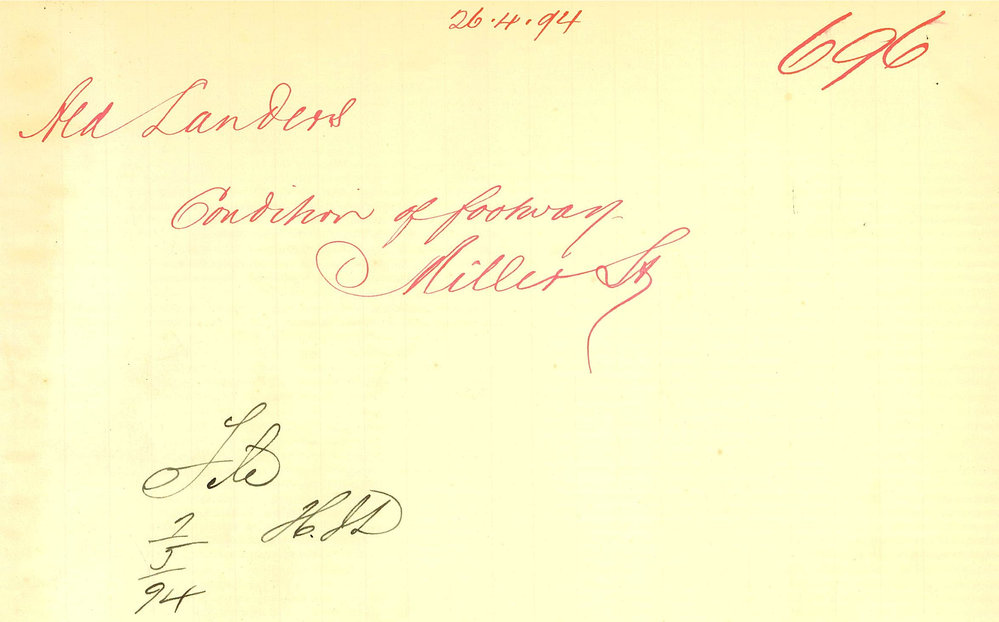 26.4.94
696
Ald Landers
Condition of footway
Miller St
File
7
5
94
H.J.D